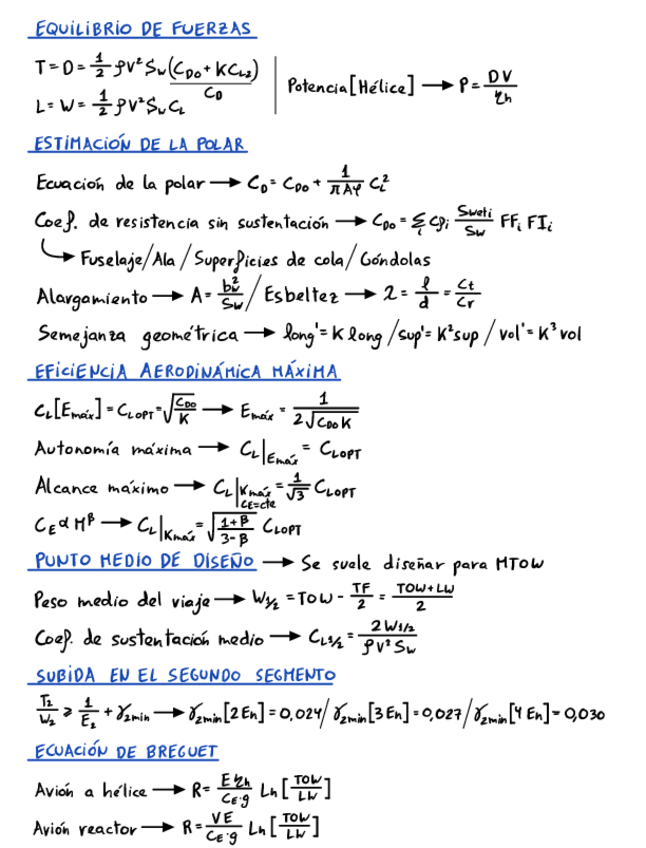 EQUILIBRIO DE FUERZAS
T = D = 1/2 ρV² Sw (CD0 + KCL²)
CD
L = W = 1/2 ρV² Sw CL
Potencia [Hélice] → P = DV/ηh
ESTIMACIÓN DE LA POLAR
Ecuación de la polar → CD = CD0 + 1/(πAφ) CL²
Coef. de resistencia sin sustentación → CD0 = Σi CFi Sweti/Sw FFi FIi
↳ Fuselaje / Ala / Superficies de cola / Góndolas
Alargamiento → A = bw²/Sw / Esbeltez → λ = l/d = Ct/Cr
Semejanza geométrica → long' = K long / sup' = K² sup / vol' = K³ vol
EFICIENCIA AERODINÁMICA MÁXIMA
CL[Emáx] = CLOPT = √(CD0/K) → Emáx = 1/(2√(CD0 K))
Autonomía máxima → CL|Emáx = CLOPT
Alcance máximo → CL|Kmáx CE=cte = 1/√3 CLOPT
CE α M^β → CL|Kmáx = √((1+β)/(3-β)) CLOPT
PUNTO MEDIO DE DISEÑO → Se suele diseñar para MTOW
Peso medio del viaje → W1/2 = TOW - TF/2 = (TOW + LW)/2
Coef. de sustentación medio → CL1/2 = 2W1/2/(ρV² Sw)
SUBIDA EN EL SEGUNDO SEGMENTO
T2/W2 ≥ 1/E2 + γ2min → γ2min [2 En] = 0,024 / γ2min [3 En] = 0,027 / γ2min [4 En] = 0,030
ECUACIÓN DE BREGUET
Avión a hélice → R = Eηh/(CE·g) Ln [TOW/LW]
Avión reactor → R = VE/(CE·g) Ln [TOW/LW]